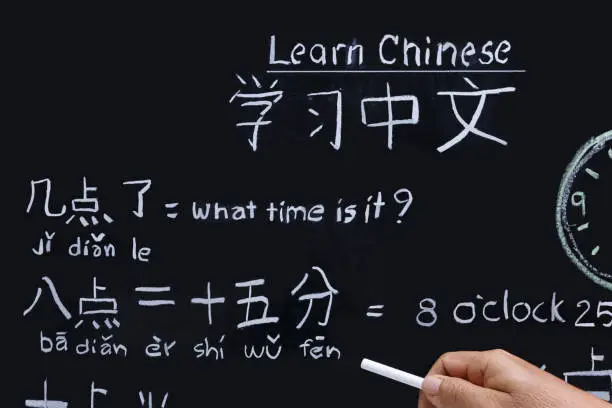 Learn Chinese
学习中文
几点了 = what time is it?
jǐ diǎn le
9
八点二十五分 = 8 o'clock 25
bā diǎn èr shí wǔ fēn